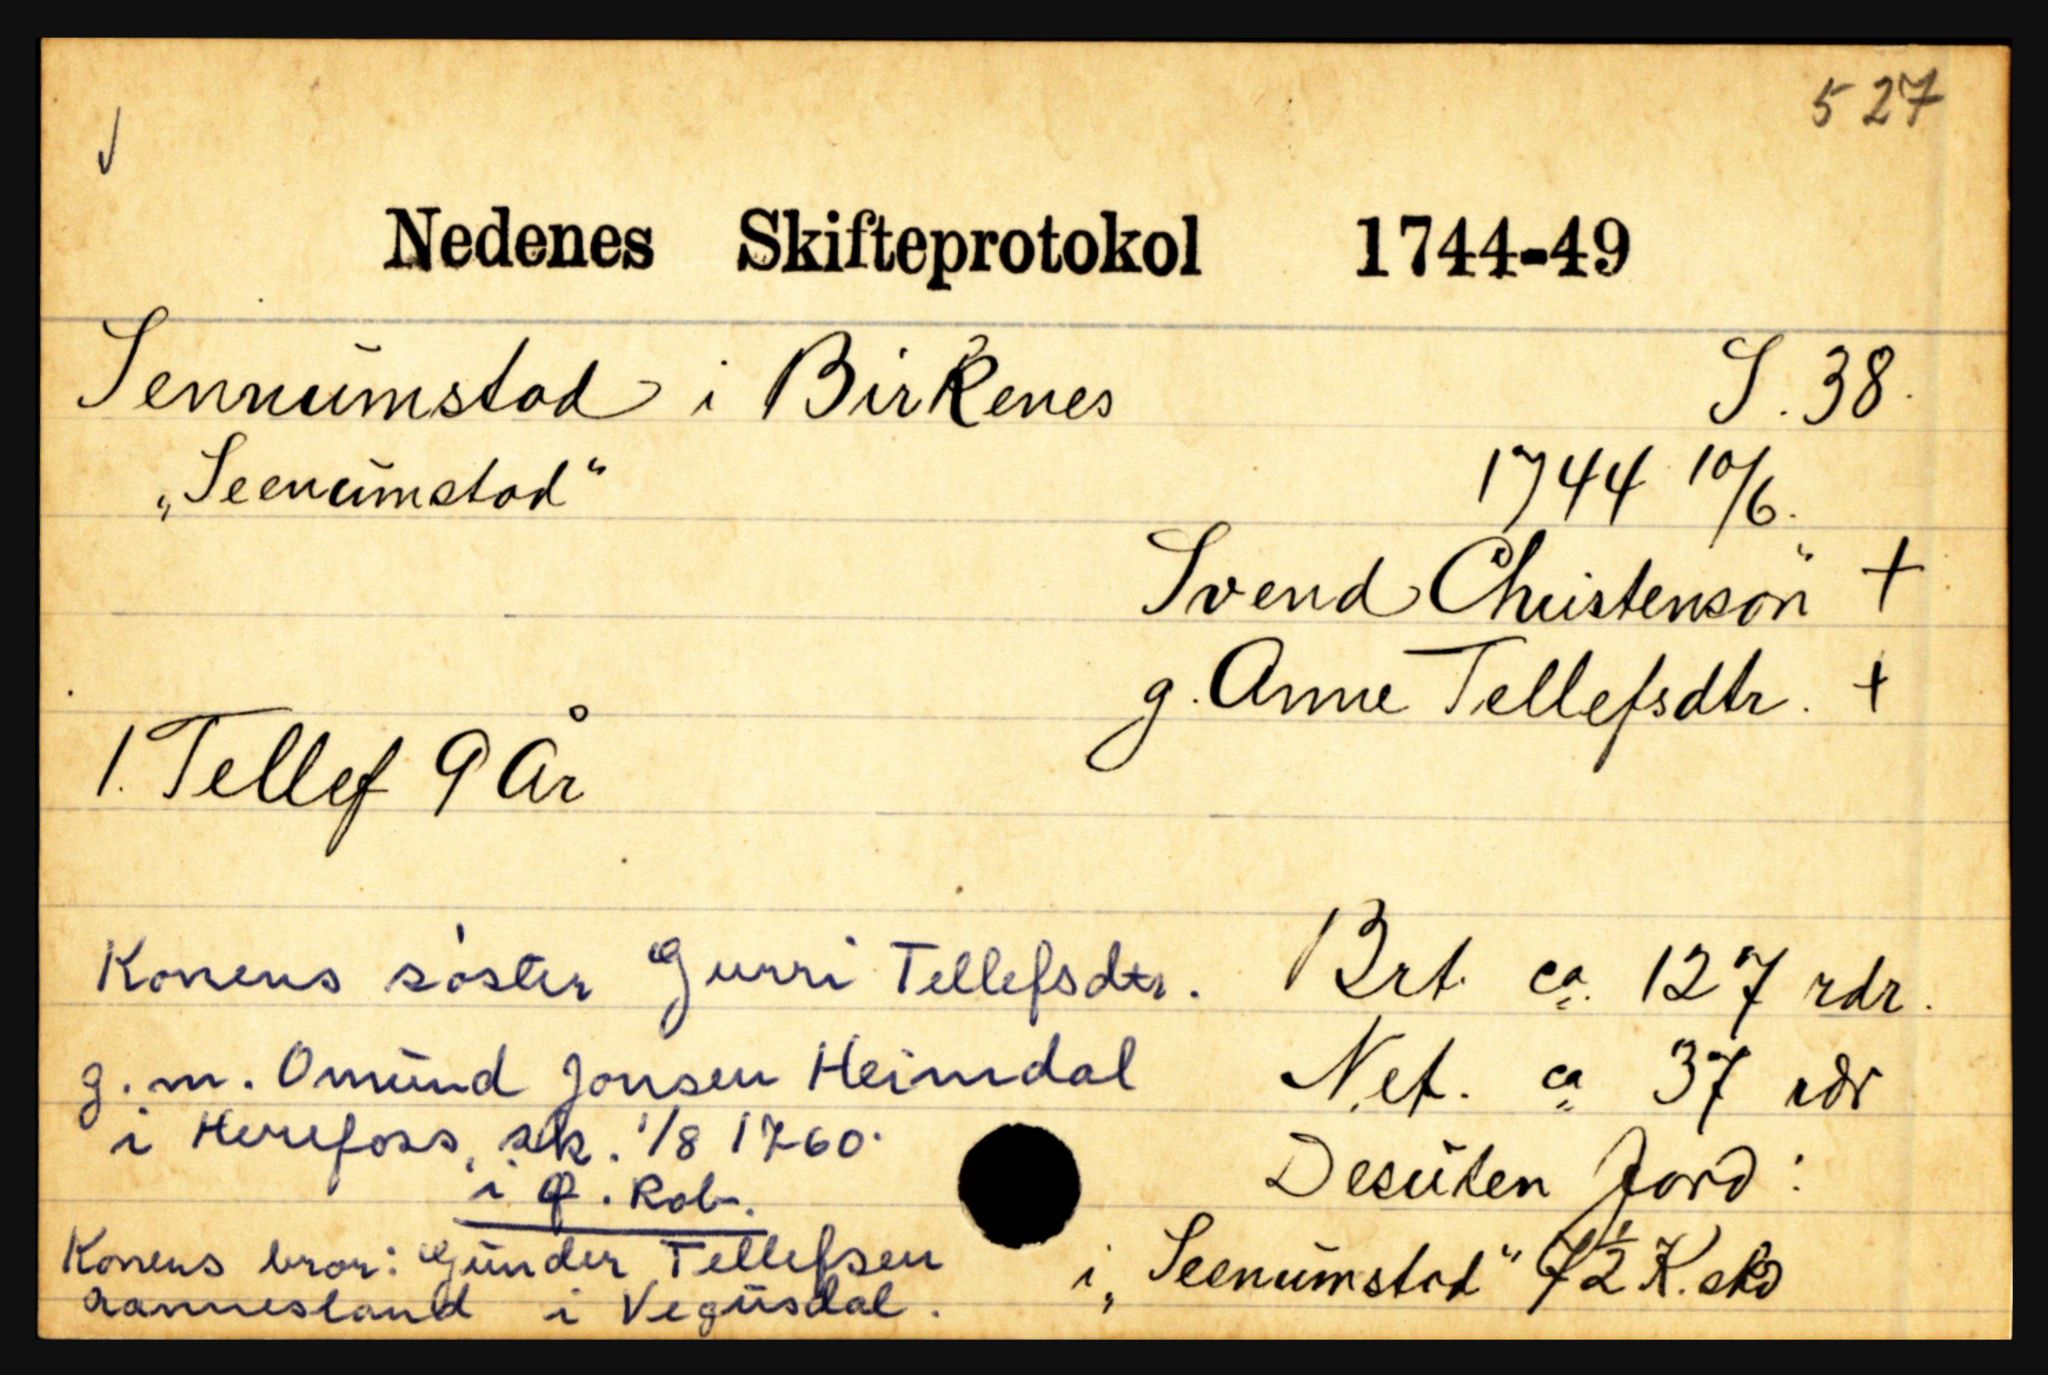 527
Nedenes Skifteprotokol 1744-49
Sennumstad i Birkenes S. 38.
„Seenumstad“ 1744 10/6.
Svend Christensøn +
g. Anne Tellefsdtr. +
1. Tellef 9 År
Konens søster Gurri Tellefsdtr. Brt. ca. 127 rdr.
g. m. Omund Jonsen Heimdal Net. ca 37 rdr
i Herefoss, sk. 1/8 1760. Desuten Jord:
i Rob.
Konens bror: Gunder Tellefsen i „Seenumstad“ 7½ K. skd
Aannesland i Vegusdal.